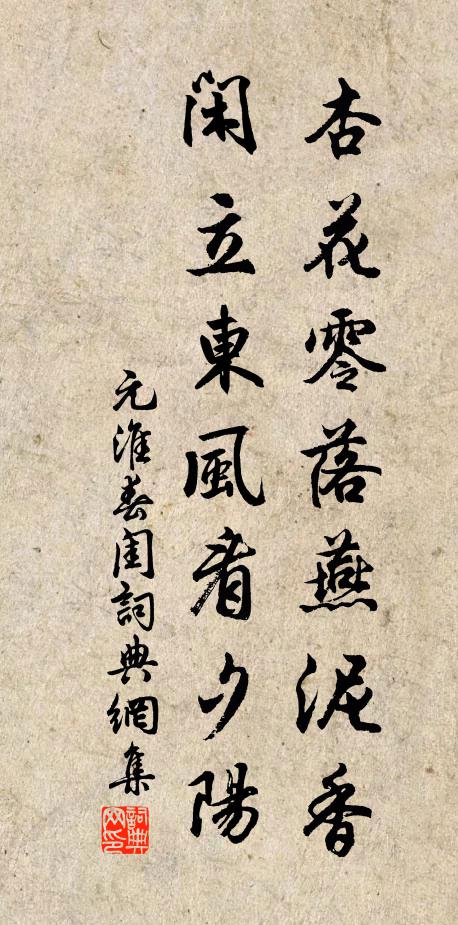 杏花零落燕泥香
閑立東風看夕陽
元淮春闺詞典網集
詞典网印